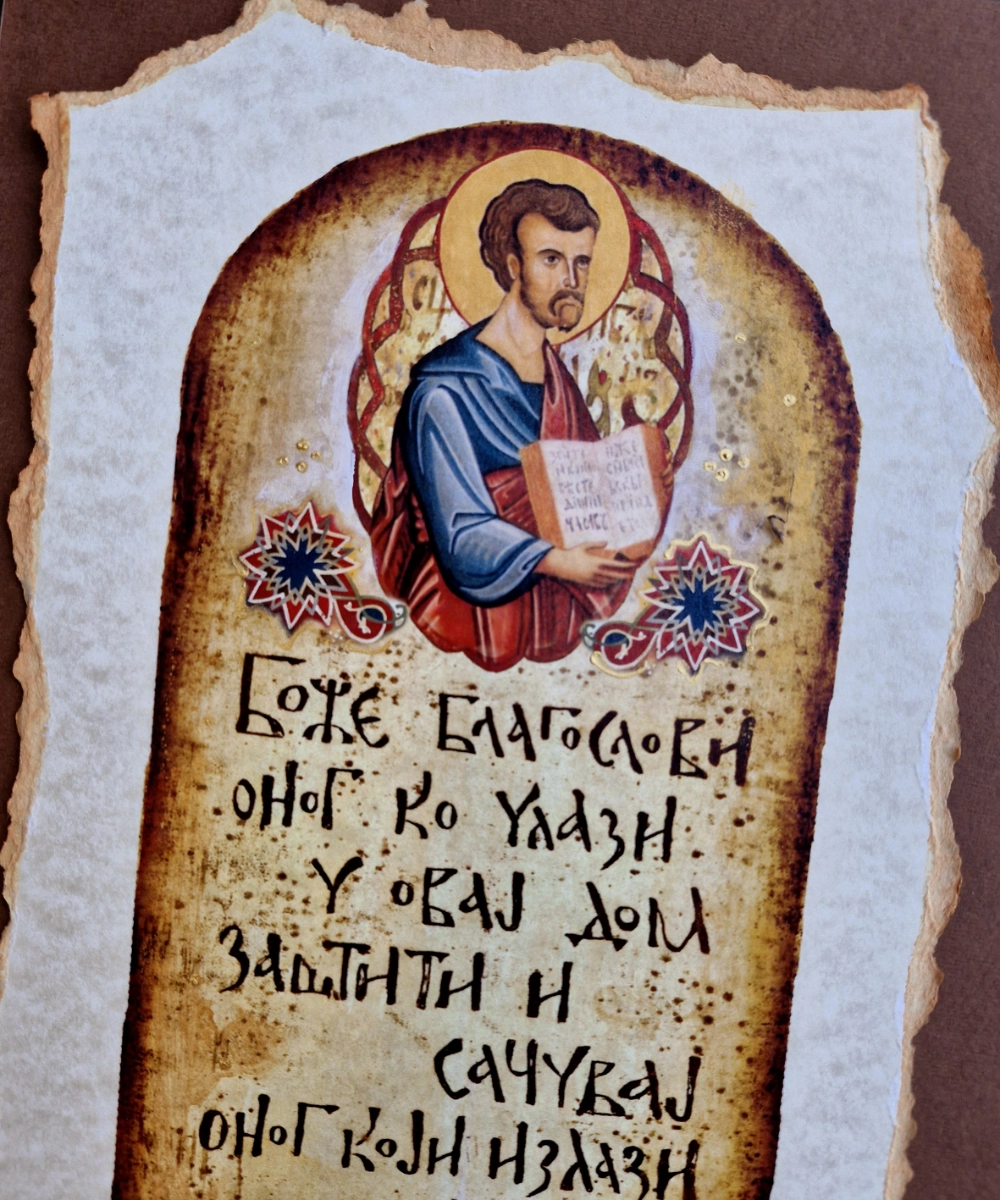 Боже благослови
оног ко улази
у овај дом
заштити и
сачувај
оног који излази